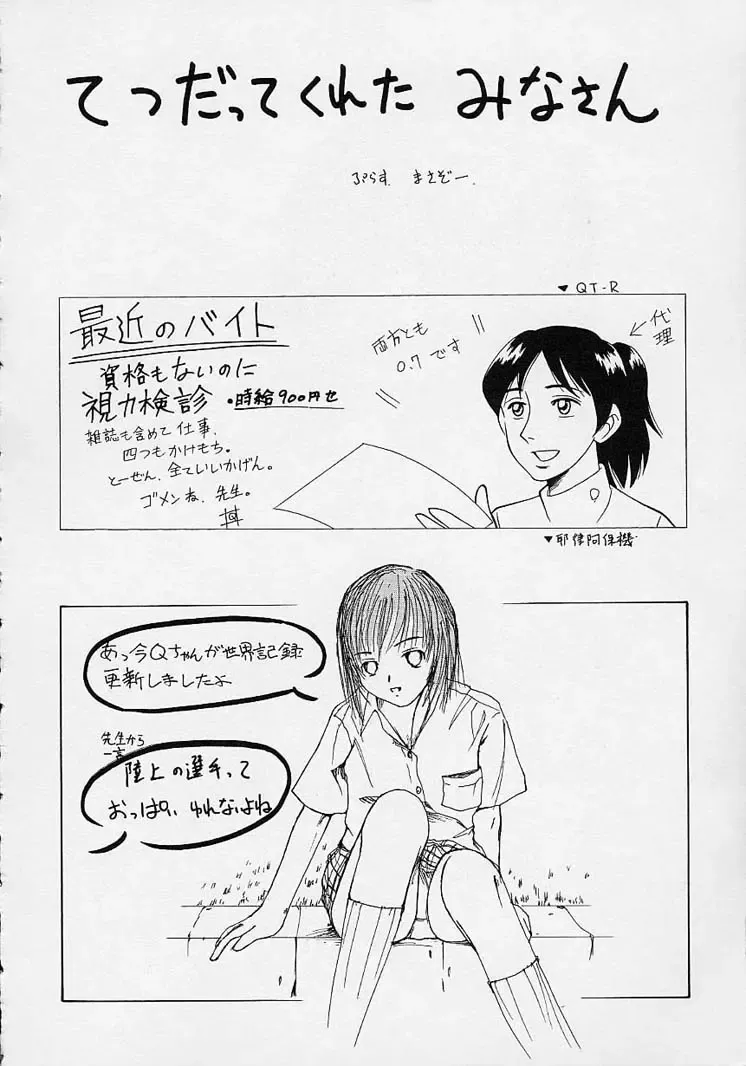 てつだってくれた みなさん
ぷらす まさぞー.
▼QT-R
最近のバイト
資格もないのに
視力検診 ・時給900円也
雑誌も含めて仕事、
四つもかけもち。
とーぜん、全ていいかげん。
ゴメンね、先生。
丼
両方とも
0.7です
←代理
▼耶律阿保機
あっ今Qちゃんが世界記録
更新しましたよ
先生から
一言
陸上の選手って
おっぱい ゆれないよね